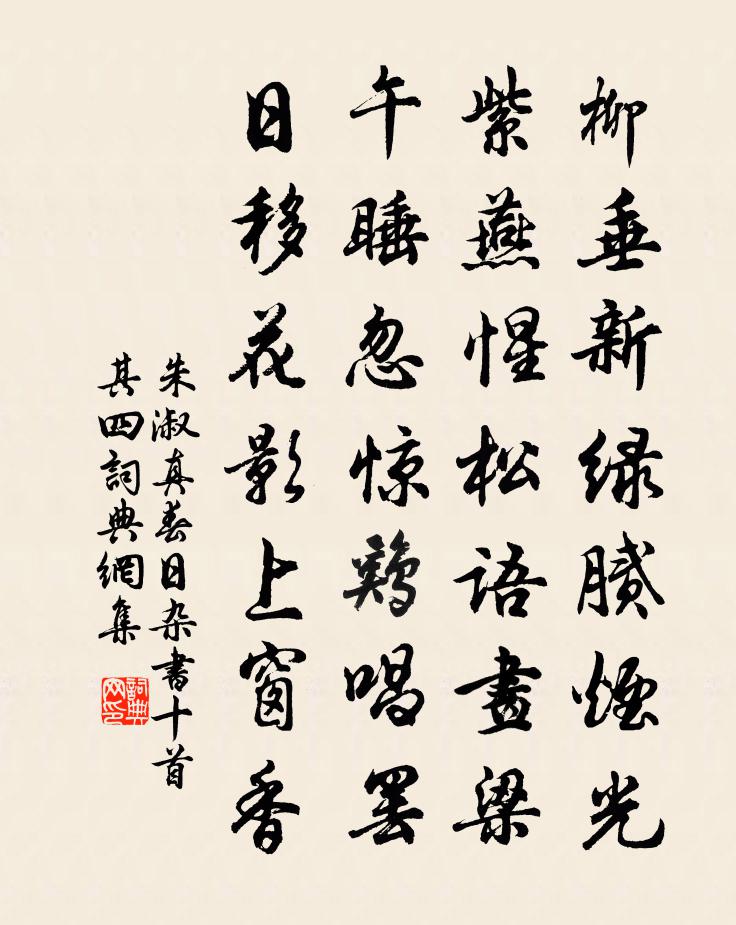 柳垂新緑膩煙光
紫燕惺松語畫梁
午睡忽惊鷄唱罢
日移花影上窗香
朱淑真春日杂書十首
其四詞典網集
詞典网印